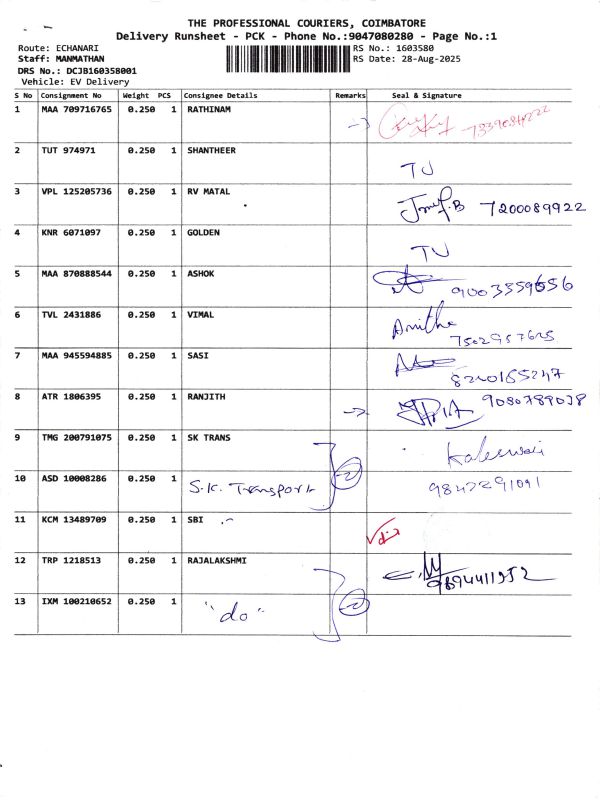 THE PROFESSIONAL COURIERS, COIMBATORE
Delivery Runsheet - PCK - Phone No.:9047080280 - Page No.:1
Route: ECHANARI RS No.: 1603580
Staff: MANMATHAN RS Date: 28-Aug-2025
DRS No.: DCJB160358001
Vehicle: EV Delivery
S No Consignment No Weight PCS Consignee Details Remarks Seal & Signature
1 MAA 709716765 0.250 1 RATHINAM
2 TUT 974971 0.250 1 SHANTHEER
TU
3 VPL 125205736 0.250 1 RV MATAL
7200089922
4 KNR 6071097 0.250 1 GOLDEN
TU
5 MAA 870888544 0.250 1 ASHOK
9003559656
6 TVL 2431886 0.250 1 VIMAL
Anitha
7502957625
7 MAA 945594885 0.250 1 SASI
8220165247
8 ATR 1806395 0.250 1 RANJITH
9080789038
9 TMG 200791075 0.250 1 SK TRANS
10 ASD 10008286 0.250 1 S.K. Transport 2 9842291091
11 KCM 13489709 0.250 1 SBI
12 TRP 1218513 0.250 1 RAJALAKSHMI
9894411952
13 IXM 100210652 0.250 1 "do" 2